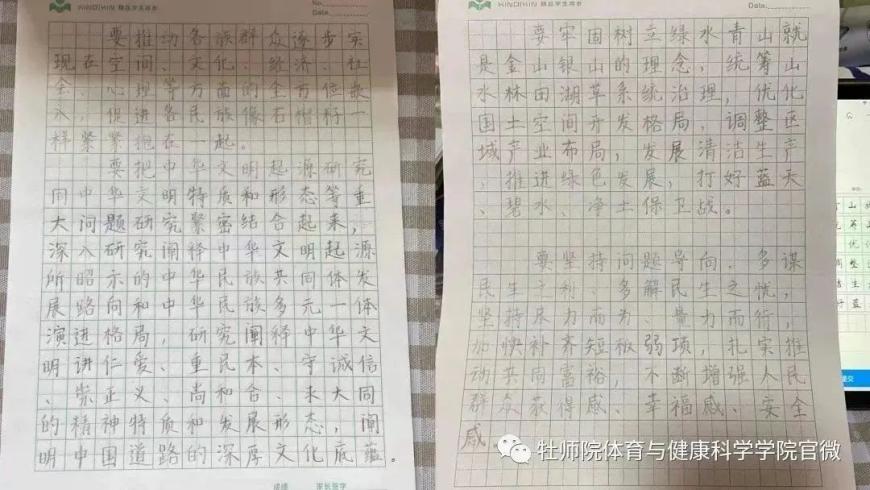 XINDIXIN 精品学生用市
No.
Date.
要推动各族群众逐步实
现在空间、文化、经济、社
会、心理等方面的全方位嵌
入，促进各民族像石榴籽一
样紧紧抱在一起。
要把中华文明起源研究
同中华文明特质和形态等重
大问题研究紧密结合起来，
深入研究阐释中华文明起源
所昭示的中华民族共同体发
展路向和中华民族多元一体
演进格局，研究阐释中华文
明讲仁爱、重民本、守诚信
、崇正义、尚和合、求大同
的精神特质和发展形态，阐
明中国道路的深厚文化底蕴。
成绩 家长签字
XINDIXIN
No.
Date.
要牢固树立绿水青山就
是金山银山的理念，统筹山
水林田湖草系统治理，优化
国土空间开发格局，调整区
域产业布局，发展清洁生产
，推进绿色发展，打好蓝天
、碧水、净土保卫战。
要坚持问题导向，多谋
民生之利、多解民生之忧，
坚持尽力而为、量力而行，
加快补齐短板弱项，扎实推
动共同富裕，不断增强人民
群众获得感、幸福感、安全
感。
提交
牡师院体育与健康科学学院官微